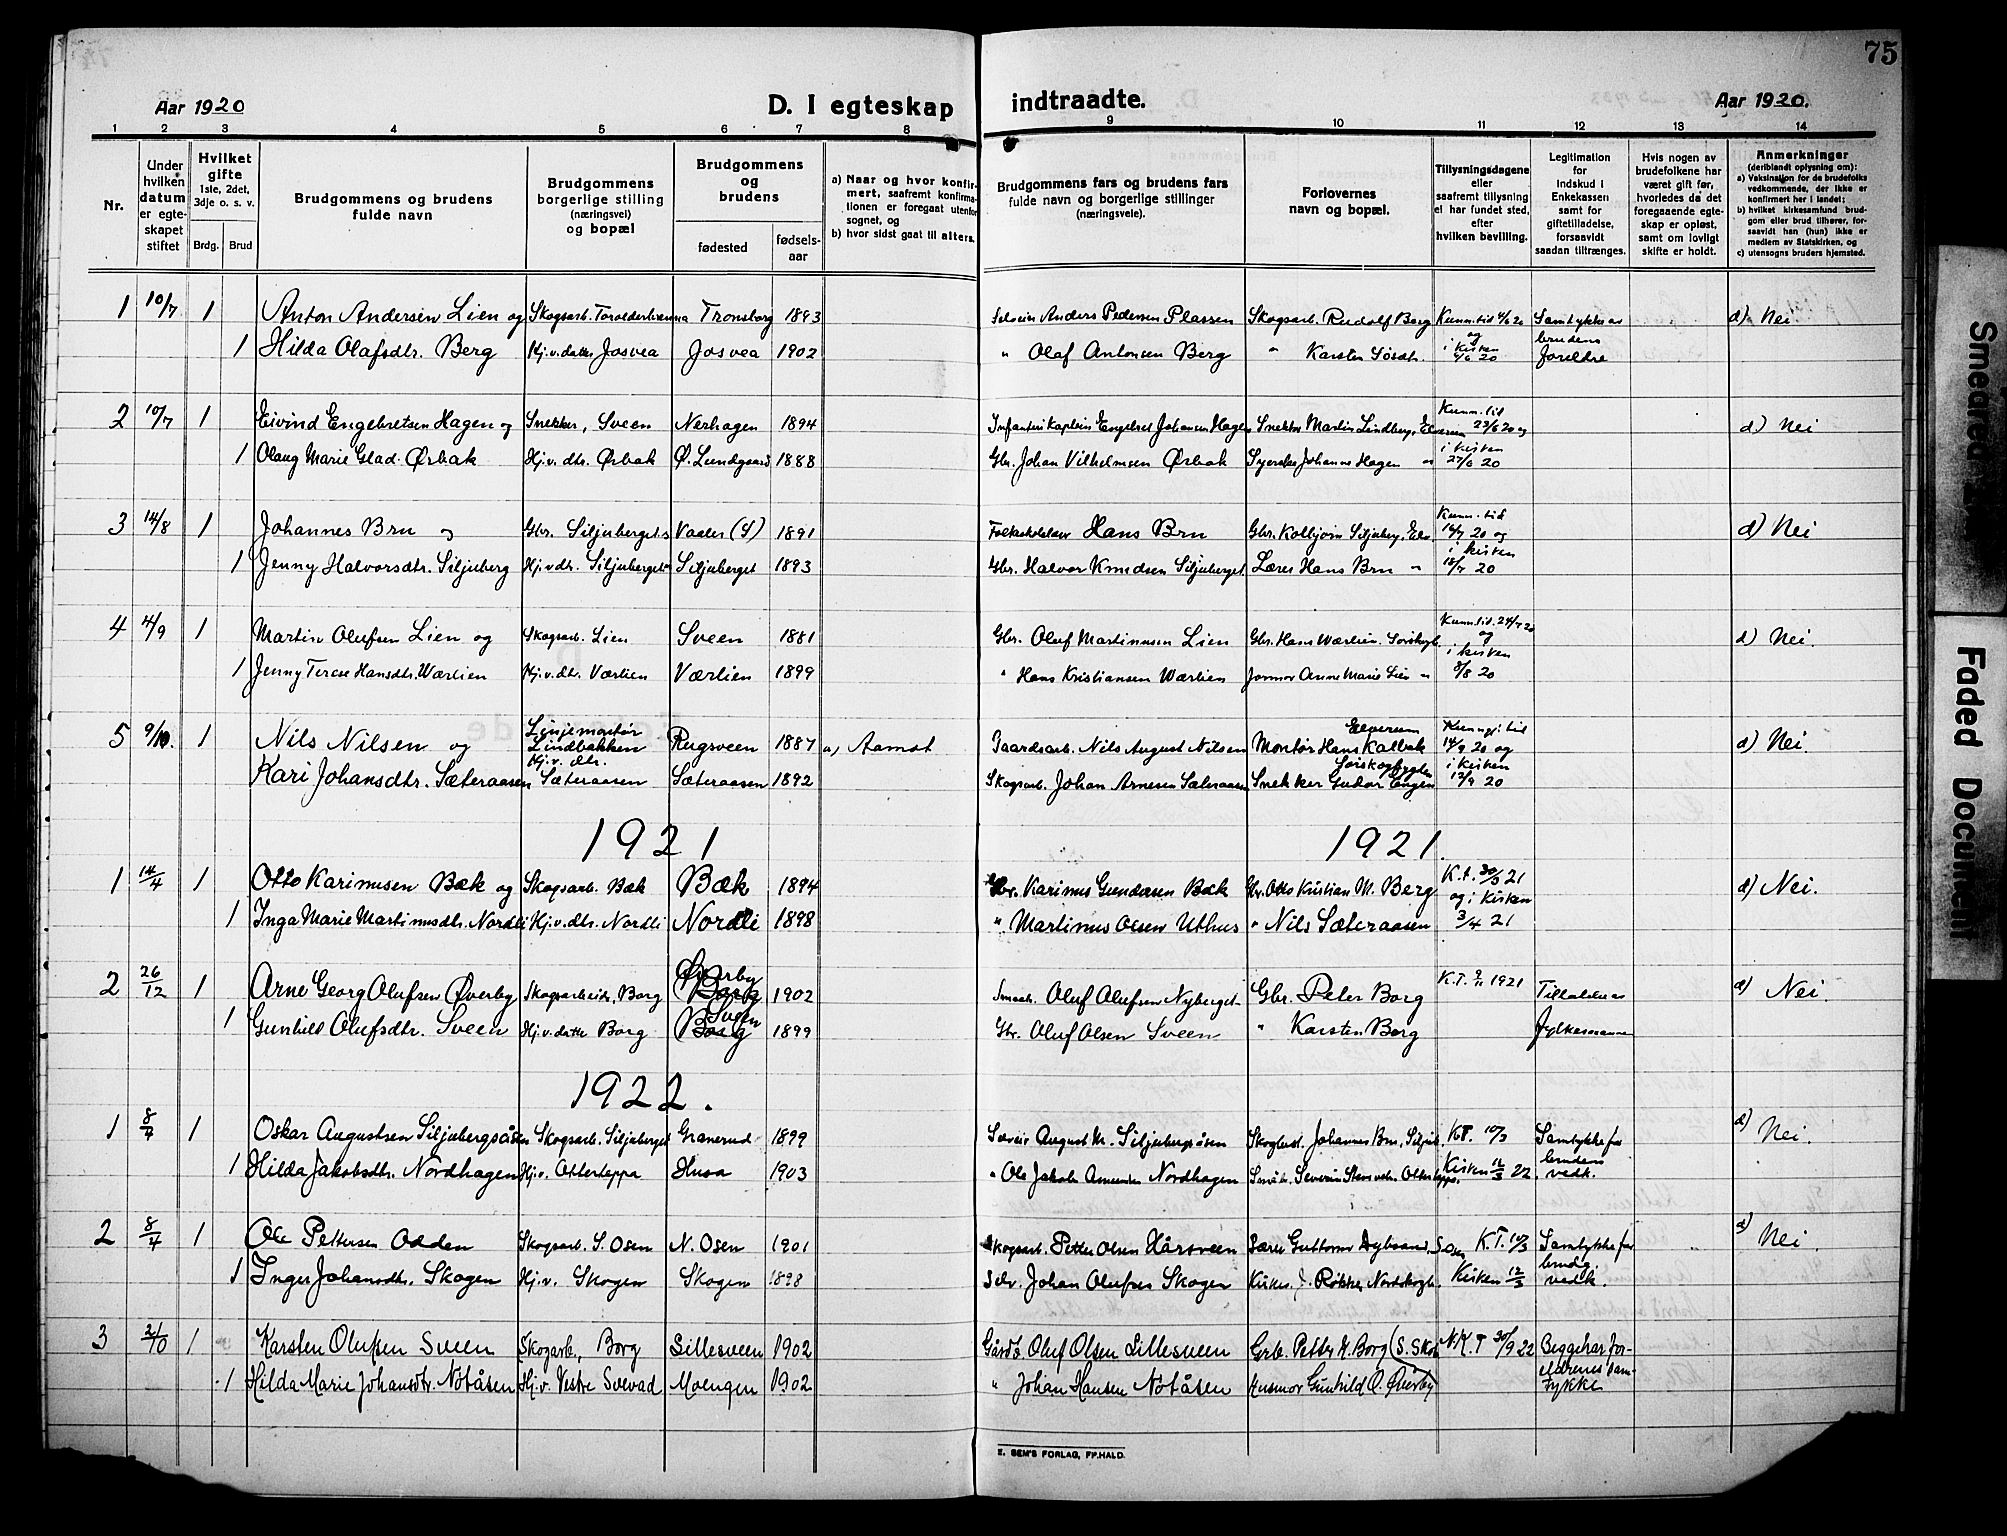 75
Aar 1920 D. I egteskap indtraadte. Aar 1920.
1 2 3 4 5 6 7 8 9 10 11 12 13 14
Nr.
Under hvilken datum er egteskapet stiftet
Hvilket gifte 1ste, 2det, 3dje o. s. v.
Brdg. Brud
Brudgommens og brudens fulde navn
Brudgommens borgerlige stilling (næringsvei) og bopæl
Brudgommens og brudens
fødested fødsels-aar
a) Naar og hvor konfirmert, saafremt konfirmationen er foregaat utenfor sognet, og
b) hvor sidst gaat til alters.
Brudgommens fars og brudens fars fulde navn og borgerlige stillinger (næringsveie).
Forlovernes navn og bopæl.
Tillysningsdagene eller saafremt tillysning ei har fundet sted, efter hvilken bevilling.
Legitimation for indskud i Enkekassen samt for giftetilladelse, forsaavidt saadan tiltrænges.
Hvis nogen av brudefolkene har været gift før, hvorledes da det foregaaende egteskap er opløst, samt om lovligt skifte er holdt.
Anmerkninger (deriblandt oplysning om):
a) Vaksination for de brudefolks vedkommende, der ikke er konfirmert her i landet;
b) hvilket kirkesamfund brudgom eller brud tilhører, forsaavidt han (hun) ikke er medlem av Statskirken, og
c) utensogns bruders hjemsted.
1 10/7 1 Anton Andersen Lien og Skogsarb. Tronsborg 1893 Anders Pedersen Plassen Skogsarb. Rudolf Borg Kunn. tid 4/6 20 og Samtykke av d) Nei
1 Hilda Olafsdtr. Berg Hj.v. datter Josvea Josvea 1902 " Olaf Antonsen Berg " Karsten i kirken 6/6 20 brudens foreldre
2 10/7 1 Eivind Engebretsen Hagen og Snekker, Sveen Nerhagen 1894 Engebret Johansen Hagen Snekker Martin Lindberg, Kunn. tid 22/6 20 og d) Nei
1 Olaug Marie Glad. Ørbak Hj.v. dtr. Ørbak Ø. Lundgaard 1888 Gbr. Johan Vilhelmsen Ørbak Johanne Hagen " i kirken 27/6 20
3 14/8 1 Johannes Bru og Gbr. Siljuberget Vaaler (S) 1891 Hans Bru Gbr. Kolbjørn Siljuberg, Elv. Kunn. tid 14/7 20 og d) Nei
1 Jenny Halvorsdtr. Siljuberg Hj.v. dtr. Siljuberget Siljuberget 1893 Gbr. Halvor Knudsen Siljuberget Lærer Hans Bru " i kirken 18/7 20
4 4/9 1 Martin Olufsen Lien og Skogsarb. Lien Sveen 1881 Gbr. Oluf Martinusen Lien Gbr. Hans Wærlien. Sørskogb. Kunn. tid 24/7 20 og d) Nei.
1 Jenny Terese Hansdtr. Wærlien Hj.v. dtr. Værlien Værlien 1899 " Hans Kristiansen Wærlien Jormor Anne Marie Lien " i kirken 8/8 20
5 9/10. 1 Nils Nilsen og Linjemontør Lindbakken Rugsveen 1887 a) Aamot Gaardsarb. Nils August Nilsen Elverum Montør Hans Kalbak Kunngj. tid 14/9 20 og d) Nei.
Kari Johansdtr. Sæteraasen Hj.v. dtr. Sæteraasen Sæteraasen 1892 Skogsarb. Johan Arnesen Sæteraasen Sørskogbygden Snekker Gudar Engen i kirken 12/9 20
1921 1921.
1 14/4 1 Otto Karinusen Bæk og Skogsarb. Bæk Bæk 1894 Gbr. Karinus Gundersen Bæk Gbr. Otto Kristian M. Berg K.t. 30/3 21 og i kirken d) Nei.
1 Inga Marie Martinusdtr. Nordli Hj.v. dtr. Nordli Nordli 1898 " Martinus Olsen Uthus " Nils Sæteraasen 3/4 21
2 26/12 1 Arne Georg Olufsen Øverby Skogsarbeider, Borg Øverby Borg 1902 Oluf Olufsen Nyberget Gbr. Peter Borg K.T. 9/11 1921 Tilladelse av d) Nei.
1 Gunhild Olufsdtr. Sveen Hj.v. datter Borg Sveen Borg 1899 Gbr. Oluf Olsen Sveen " Karsten Borg fylkesmannen
1922.
1 8/4 1 Oskar Augustsen Siljubergsåsen Skogsarb. Siljuberget Granerud 1899 August M. Siljubergsåsen Johannes Bru, K.T. 10/3 Samtykke for d) Nei.
1 Hilda Jakobsdtr. Nordhagen Hj.v. Otterteppa Husa 1903 " Ole Jakob Amundsen Nordhagen Severin Kirken 12/3 22. brudens vedk.
2 8/4 1 Ole Pettersen Odden Skogsarb. S. Osen N. Osen 1901 Skogsarb. Petter Olsen Hårsveen Lærer Guttorm S. Osen K.T. 10/3 Samtykke for d) Nei.
1 Inger Johansdtr. Skogen Hj.v. Skogen Skogen 1898 Selv. Johan Olufsen Skogen Nordskogb. Kirken 12/3 brudg. vedk.
3 21/10 1 Karsten Olufsen Sveen Skogarb., Borg Lillesveen 1902 Gårdb. Oluf Olsen Lillesveen Grb. Petter H. Borg (S. Skob. N.K.T 30/9 22 Begge har for-
1 Hilda Marie Johansdtr. Nötåsen Hj.v. Vestre Svevad Moengen 1902 " Johan Hansen Nötåsen Husmor Gunhild O. Øverby eldrenes samtykke
E. SEM'S FORLAG, FR.HALD.
Smedrean
Faded Document